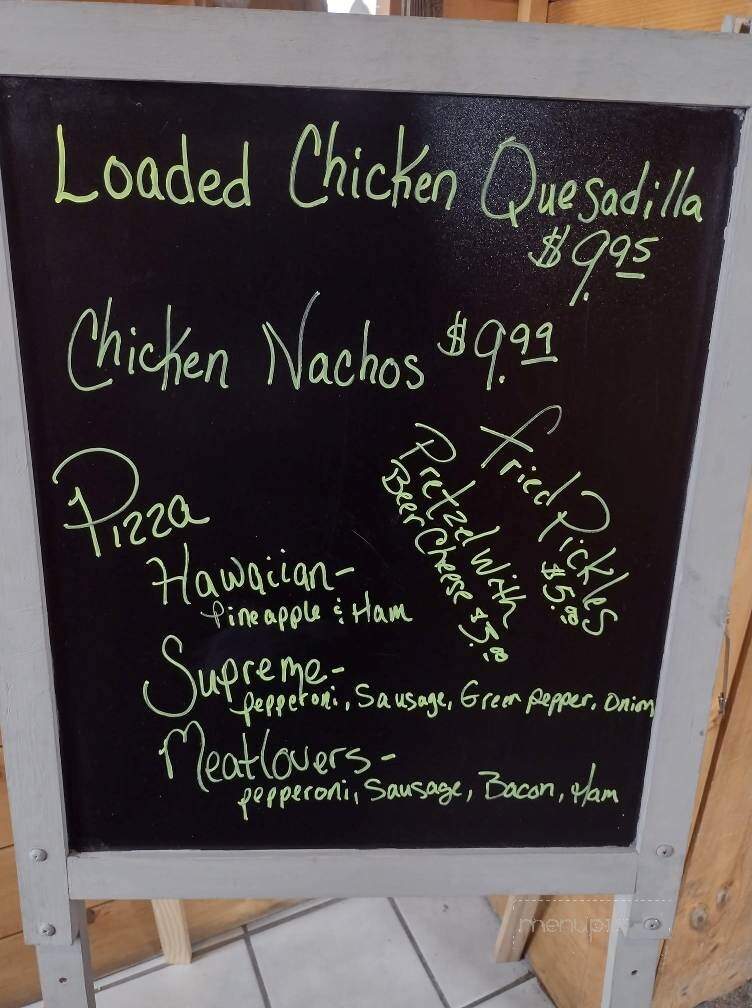 Loaded Chicken Quesadilla
$9.95
Chicken Nachos $9.99
Fried Pickles
$5.00
Pretzel With
Beer Cheese $5.00
Pizza
Hawaiian-
Pineapple & Ham
Supreme-
pepperoni, Sausage, Green pepper, Onion
Meatlovers-
pepperoni, Sausage, Bacon, Ham
menupix